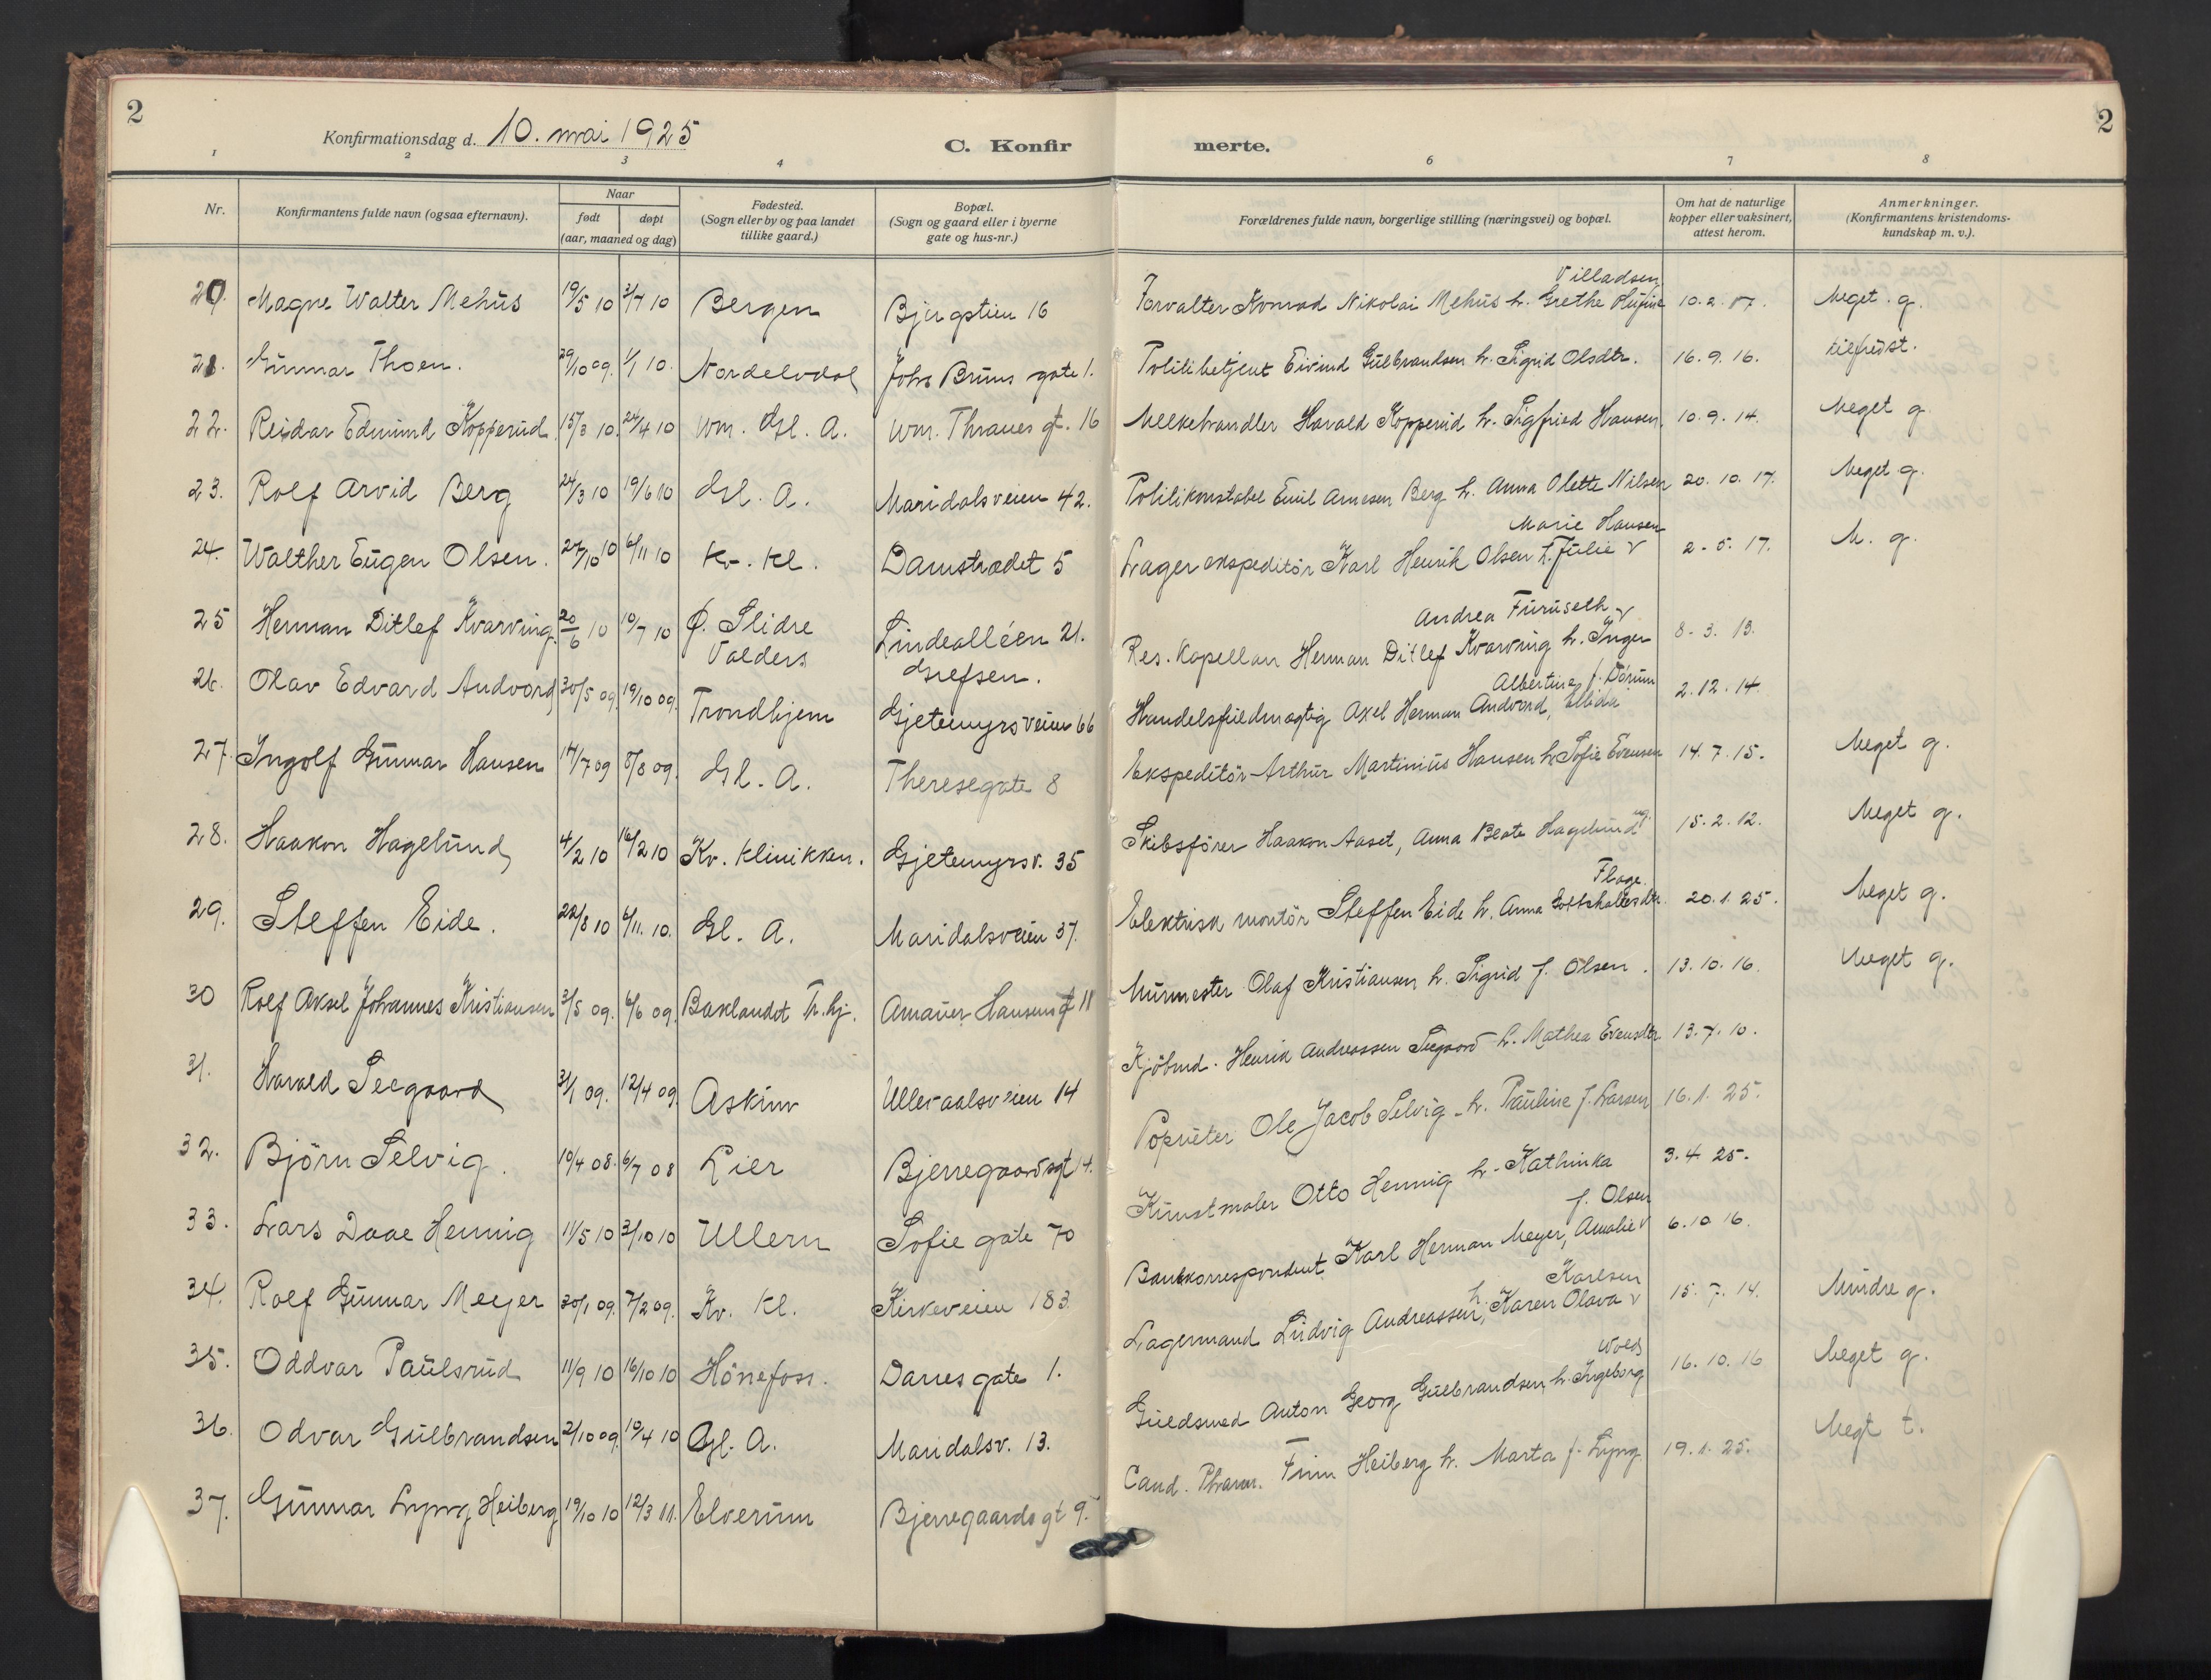 2
Konfirmationsdag d. 10. mai 1925
C. Konfir merte.
2
1 2 3 4 6 7 8
Nr. Konfirmantens fulde navn (ogsaa efternavn). Naar født døpt (aar, maaned og dag) Fødested. (Sogn eller by og paa landet tillike gaard.) Bopæl. (Sogn og gaard eller i byerne gate og hus-nr.) Forældrenes fulde navn, borgerlige stilling (næringsvei) og bopæl. Om hat de naturlige kopper eller vaksinert, attest herom. Anmerkninger. (Konfirmantens kristendoms-kundskap m. v.).
20. Magne Walter Mehus 19/5 10 3/7 10 Bergen Bjergstien 16 Forvalter Konrad Nikolai Mehus h. Grethe Olufine Villadsen 10.2.17. Meget g.
21. Gunnar Thoen. 29/10 09. 1/1 10. Nordelvdal Johs Bruns gate 1. Politibetjent Eivind Gulbrandsen h. Sigrid Olsdtr. 16.9.16. tilfredst.
22. Reidar Edmund Kopperud. 15/3 10. 24/4 10 Wm. Gl. A. Wm. Thranes gt. 16 Melkehandler Harald Kopperud h. Sigfried Hansen. 10.9.14. Meget g.
23. Rolf Arvid Berg 24/3 10 19/6 10 Gl. A. Maridalsveien 42. Politikonstabel Emil Arnesen Berg h. Anna Olette Nilsen 20.10.17. Meget g.
24. Walther Eugen Olsen. 27/10 10 6/11 10 Kv. Kl. Damstrædet 5 Lagerekspeditör Karl Henrik Olsen h. Julie v Marie Hansen 2.5.17. M. g.
25 Herman Ditlef Kvarving. 20/6 10 10/7 10 Ø. Slidre Valders Lindealléen 21. Grefsen. Res. Kapellan Herman Ditlef Kvarving h. Inger v Andrea Furuseth 8.3.13.
26. Olav Edvard Andvord 30/5 09. 19/10 09. Trondhjem Gjetemyrsveien 66 Handelsfuldmægtig Axel Herman Andvord, Ellida Albertine f. Dörum 2.12.14.
27. Ingolf Gunnar Hansen 14/7 09 8/8 09. Gl. A. Theresegate 8 Ekspeditör Arthur Martinius Hansen h. Sofie Evensen 14.7.15. Meget g.
28. Haakon Hagelund 4/2 10 16/2 10 Kv. klinikken. Gjetemyrsv. 35 Skibsförer Haakon Aaset, Anna Beate Hagelund ug. 15.2.12. Meget g.
29. Steffen Eide. 22/8 10 6/11. 10. Gl. A. Maridalsveien 37. Elektrisk montör Steffen Eide h. Anna Gottskalksdtr. Flage. 20.1.25. Meget g.
30 Rolf Aksel Johannes Kristiansen 3/5 09. 6/6 09. Baklandet Tr.hj. Amauer Hansens gt 11 Murmester Olaf Kristiansen h. Sigrid f. Olsen. 13.10.16. Meget g.
31. Harald Seegaard 31/1 09. 12/4 09. Askim Ullevaalsveien 14 Kjöbmd. Henrik Andreassen Seegaard h. Mathea Evensdtr 13.7.10.
32. Björn Selvig. 10/4 08. 6/7 08 Lier Bjerregaardsgt 4. Popriéter Ole Jacob Selvig h. Pauline f. Larsen 16.1.25.
33. Lars Daae Hennig 11/5 10 3/10 10 Ullern Sofie gate 70 Kunstmaler Otto Hennig h. Kathinka 3.4.25.
34. Rolf Gunnar Meyer 30/1 09. 7/2 09. Kv. Kl. Kirkeveien 183. Bankkorrespondent Karl Herman Meyer, Amalie v f. Olsen 6.10.16.
35. Oddvar Paulsrud 11/9 10 16/10 10 Hönefoss. Darres gate 1. Lagermand Ludvig Andreassen, h. Karen Olava v Karlsen 15.7.14. Mindre g.
36. Odvar Gulbrandsen 2/10 09. 10/4 10 Gl. A. Maridalsv. 13. Guldsmed Anton Georg Gulbrandsen h. Ingeborg Wold 16.10.16 Meget g.
37. Gunnar Lyng Heiberg 19/10 10 12/3 11. Elverum Bjerregaards gt 9. Cand. Pharm. Finn Heiberg h. Marta f. Lyng. 19.1.25. Megt t.